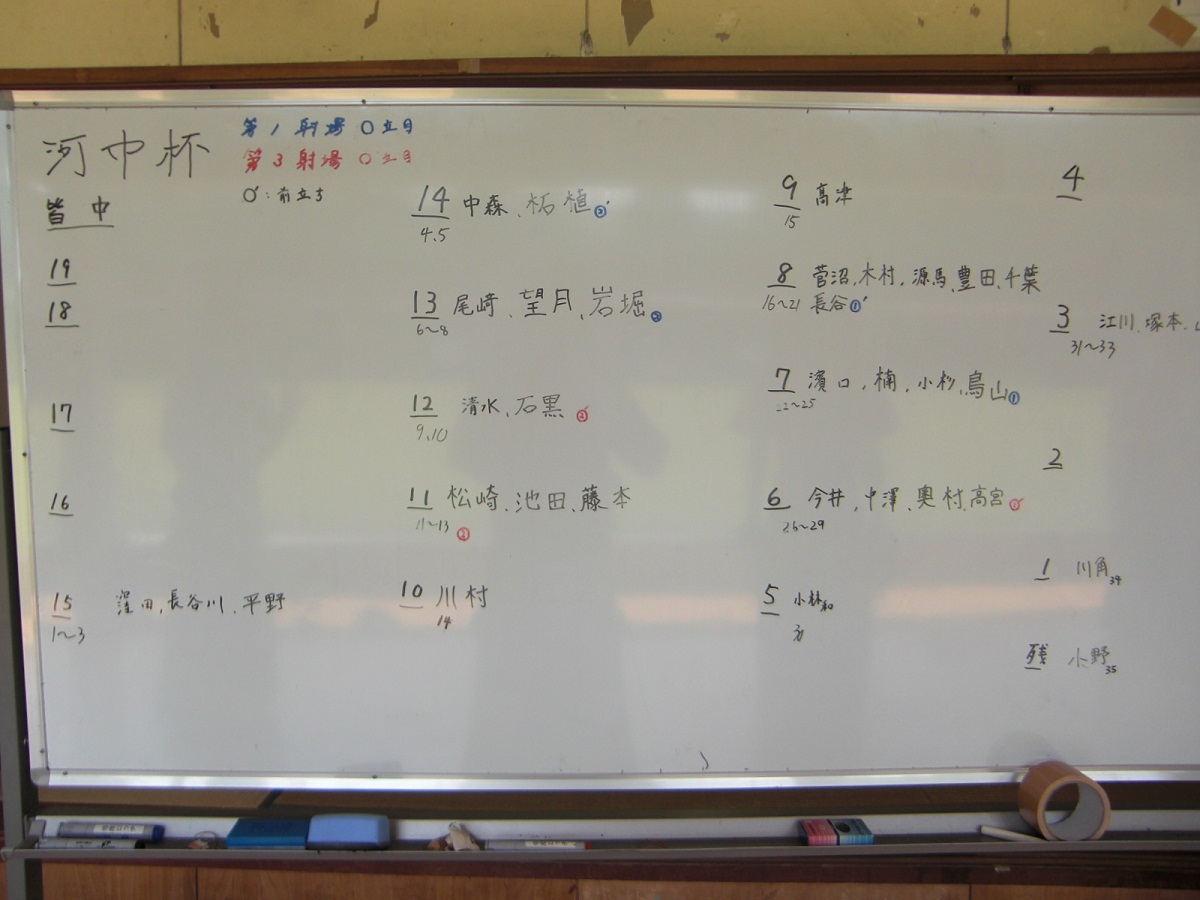 河中杯
第1射場 ○立目
第3射場 ○立目
○':前立ち
皆中
19
18
17
16
15 窪田,長谷川,平野
1~3
14 中森、柘植②'
4.5
13 尾﨑、望月、岩堀②
6~8
12 清水、石黒②'
9.10
11 松崎、池田、藤本
11~13 ②
10 川村
14
9 高津
15
8 菅沼,木村,源馬,豊田,千葉
16~21 長谷①'
7 濱口,楠,小杉,鳥山①
22~25
6 今井,中澤、奥村,高宮
26~29
5 小林和
4
3 江川、塚本、
31~33
2
1 川角34
残 小野35